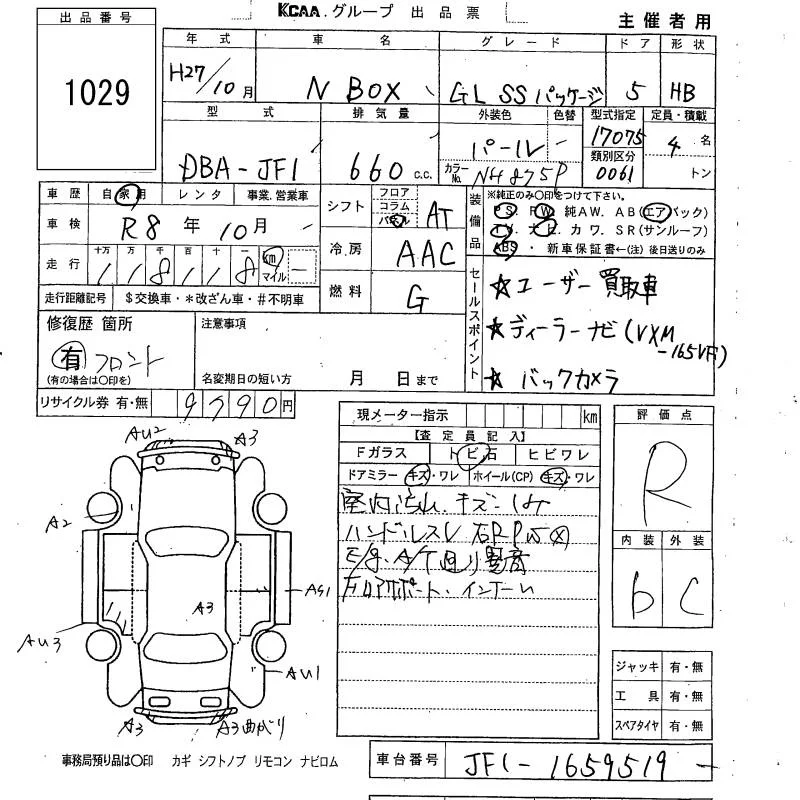 KCAA.グループ 出品票
主催者用
出品番号
1029
年式 車名 グレード ドア 形状
H27/10月 N BOX GL SSパッケージ 5 HB
型式 排気量 外装色 色替 型式指定 定員・積載
DBA-JF1 660 c.c. パール 17075 4名
カラーNo. NH875P 類別区分 0061 トン
車歴 自家用 レンタ 事業.営業車
車検 R8年10月
走行 十万 万 千 百 十 一 km マイル
1 1 8 1 1 8
走行距離記号 $交換車・*改ざん車・#不明車
シフト フロア コラム パネル AT
冷房 AAC
燃料 G
装備品 ※純正のみ〇印をつけて下さい。
PS. PW. 純AW. AB(エアバック)
TV. ナビ カワ. SR(サンルーフ)
ABS. 新車保証書←(注) 後日送りのみ
セールスポイント
☆ユーザー買取車
☆ディーラーナビ(VXM
-165VFi)
☆バックカメラ
修復歴 箇所
有 フロント
(有の場合は〇印を)
注意事項
名変期日の短い方 月 日まで
リサイクル券 有・無 9790円
現メーター指示 km
【査定員記入】
Fガラス トビ石 ヒビワレ
ドアミラー キズ・ワレ ホイール(CP) キズ・ワレ
室内汚れ.キズ・
ハンドルスレ
E/g. A/T 廻り異音
・インナー
評価点
R
内装 外装
b C
ジャッキ 有・無
工具 有・無
スペアタイヤ 有・無
AU2
A3
A2
AS1
A3
AU3
AU1
A3
A3曲がり
事務局預り品は〇印 カギ シフトノブ リモコン ナビロム
車台番号 JF1-1659519